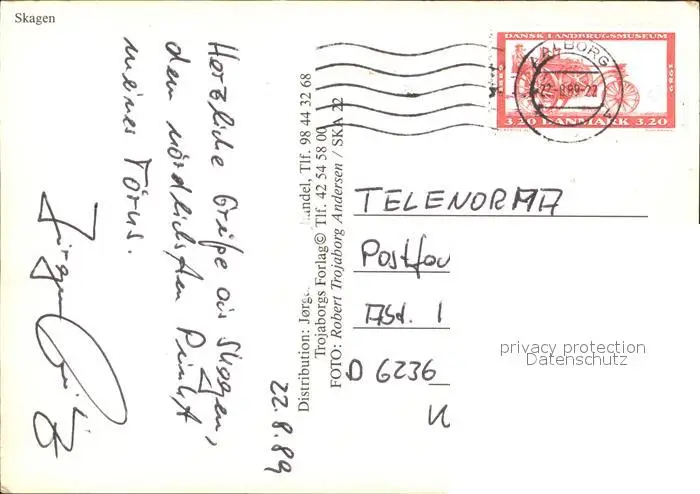 Skagen
Herzliche Grüße aus Skagen,
dem nördlichsten Punkt
meiner Törns.
Jürgen
22.8.89
Distribution: Jørg
handel, Tlf. 98 44 32 68
Trojaborgs Forlag© Tlf. 42 54 58 00
FOTO: Robert Trojaborg Andersen / SKA 22
DANSK LANDBRUGSMUSEUM
1889 1989
3.20 DANMARK 3.20
AALBORG
22-8.89-22
TELENORMA
Postfac
Abt. 1
D 6236
privacy protection
Datenschutz